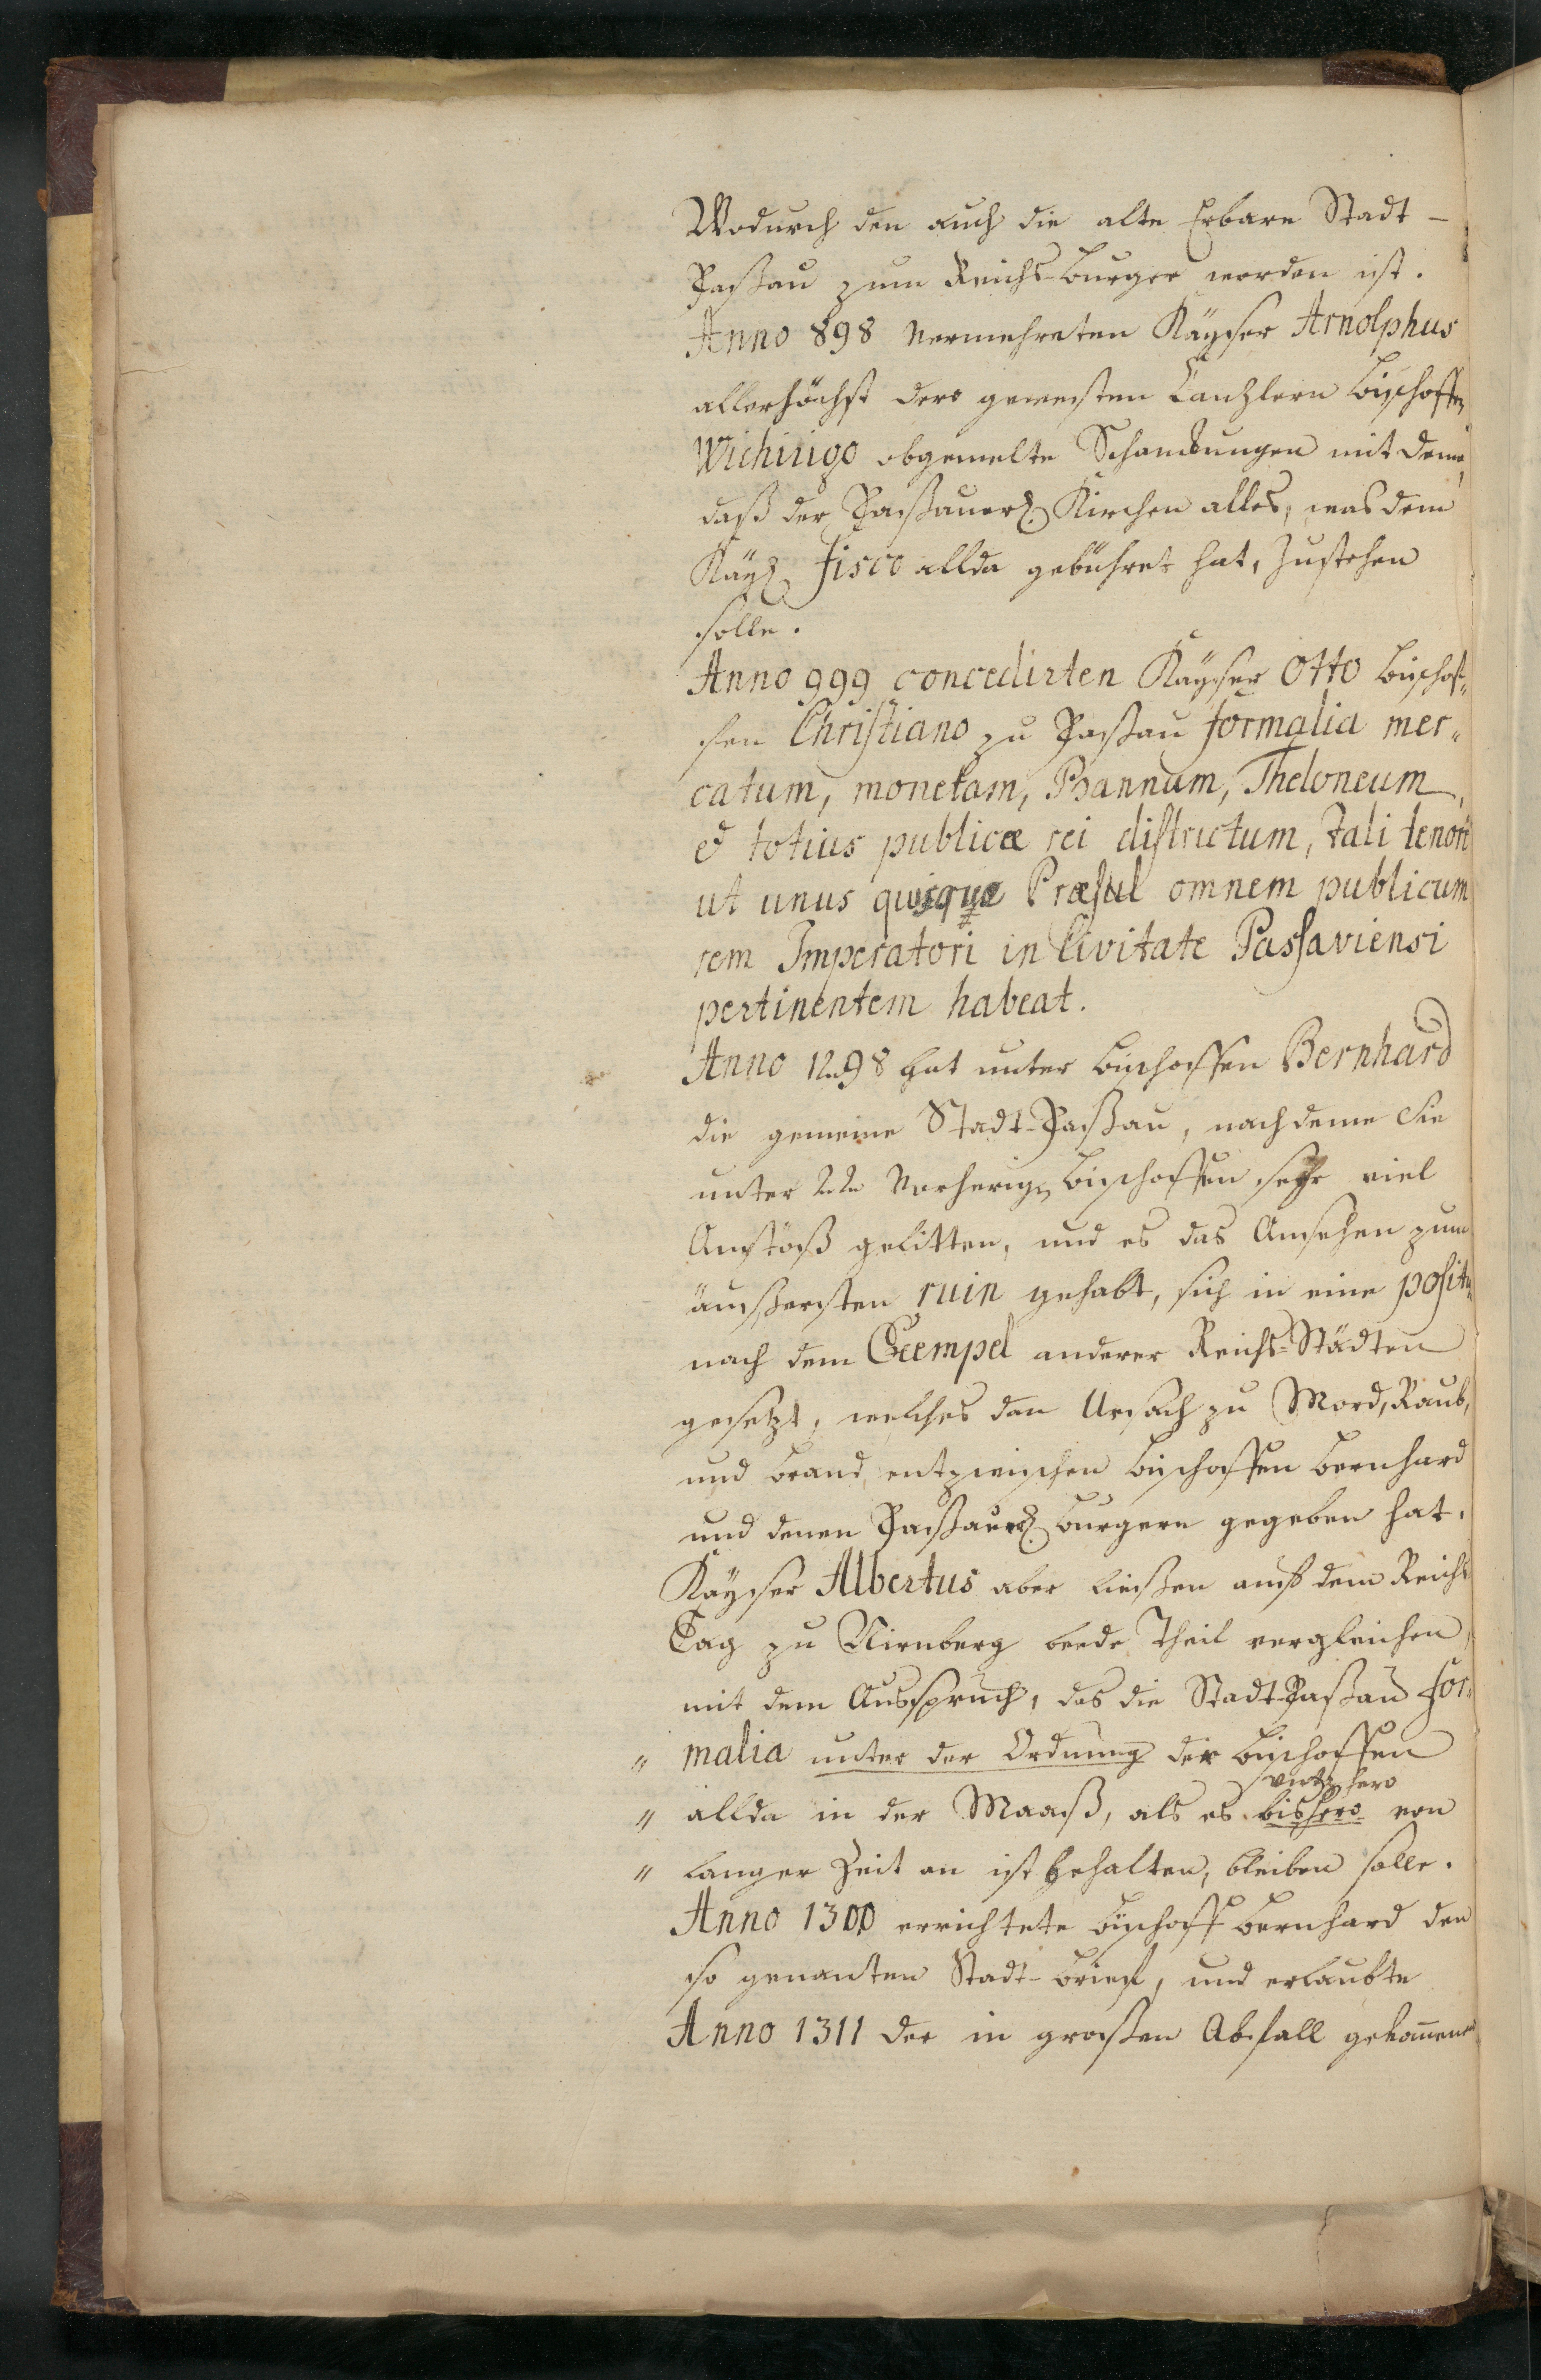 Wodurch den auch die alte Erbare Stadt-
Paßau zum Reichs-burger worden ist.
Anno 898 vermehreten Käyser Arnolphus
allerhöchst dero gewesten Canzlern Bischoffen
Wichirigo obgemelte Schankungen mit deme,
daß der Paßauer. Kirchen alles, was dem
Käy. fisco allda gebühret hat, zustehen
solle.
Anno 999 concedirten Käyser Otto Bischof„
fen Christiano zu Paßau formalia mer„
catum, monetam, Bannum, Theloneum,
& totius publicæ rei districtum, tali tenore
ut unus quisque Præsul omnem publicum
rem Imperatori in Civitate Passaviensi
pertinentem habeat.
Anno 1298 hat unter Bischoffen Bernhard
die gemeine Stadt-Paßau, nach deme Sie
unter vorherigen Bischoffen sehr viel
Anstöß gelitten, und es das Ansehen zum
äussersten ruin gehabt, sich in eine positur
nach dem Exempel anderer Reichs-Städten
gesetzt, welches dan Ursach zu Mord, Raub,
und brand, entzwischen Bischoffen Bernhard
und denen Paßauer. burgern gegeben hat.
Käyser Albertus aber liessen auf dem Reichs
Tag zu Nirnberg beede Theil vergleichen,
mit dem Ausspruch, das die Stadt-Paßau for„
„ malia unter der Ordnung der Bischoffen
hero
„ allda in der Maaß, als es bishero von
„ langer Zeit an ist gehalten, bleiben solle.
Anno 1300 errichtete Bischoff Bernhard den
so genanten Stadt-brieff, und erlaubte
Anno 1311 der in großen Abfall gekom̄enen